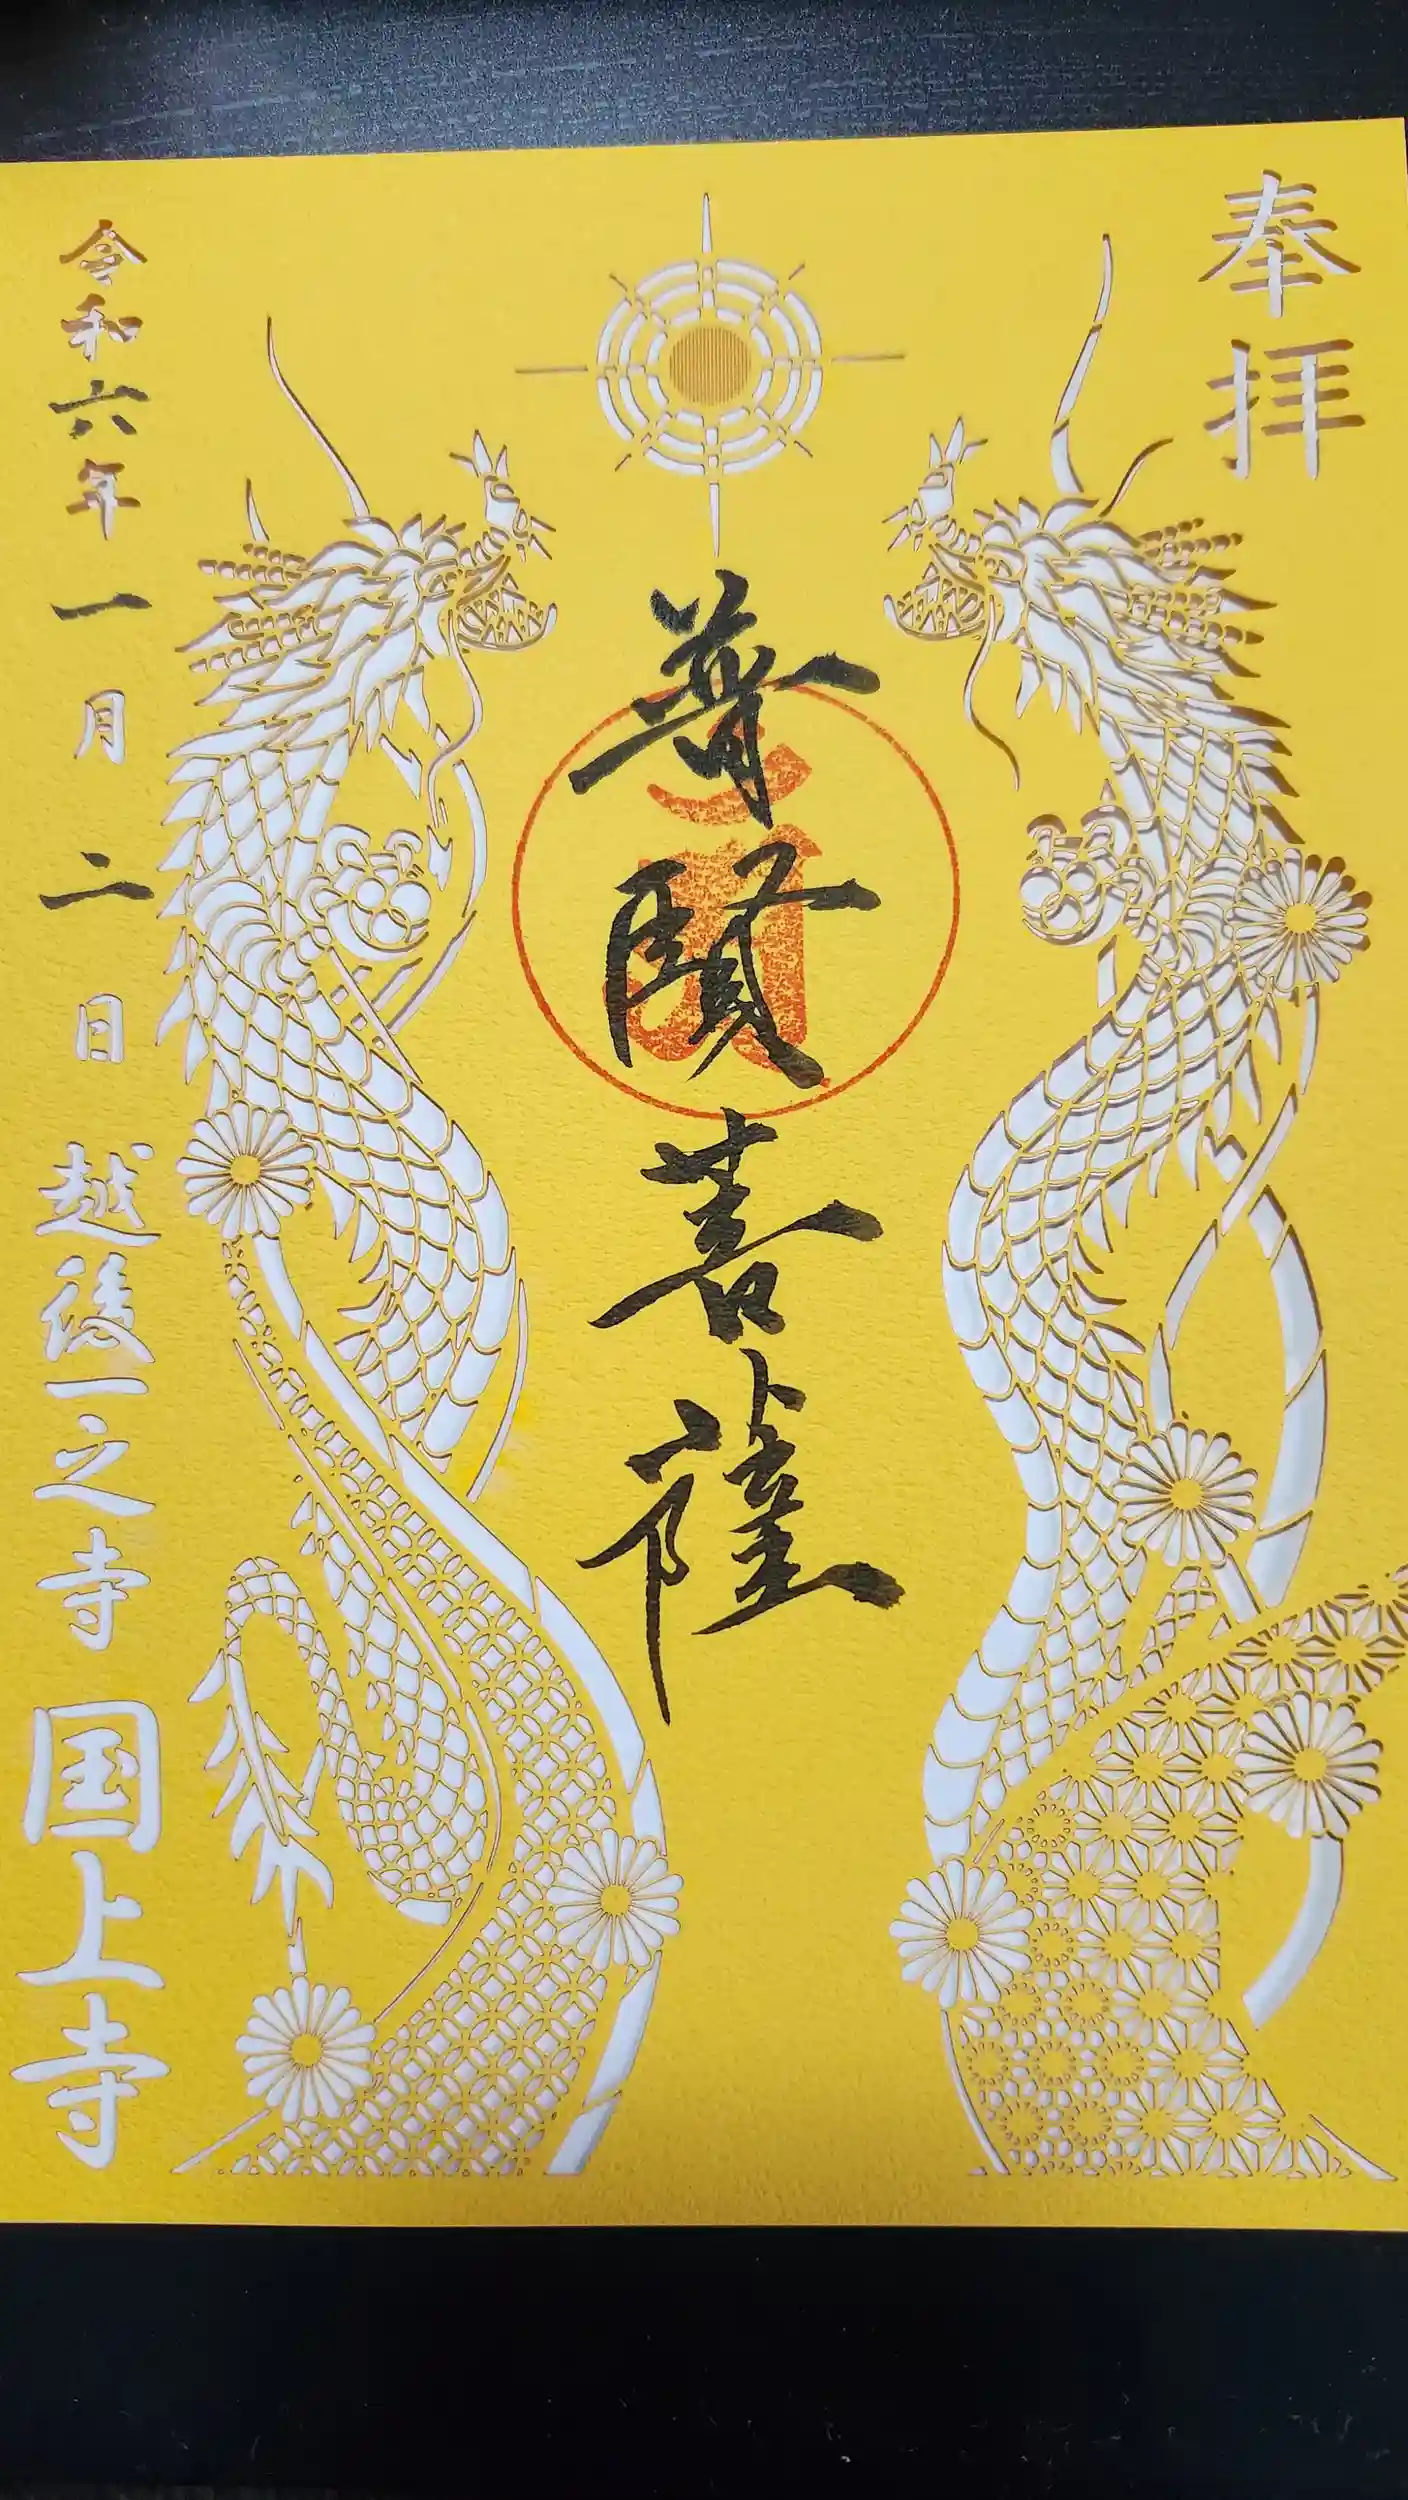 奉拝
普賢菩薩
令和六年一月二日 越後一之寺 国上寺